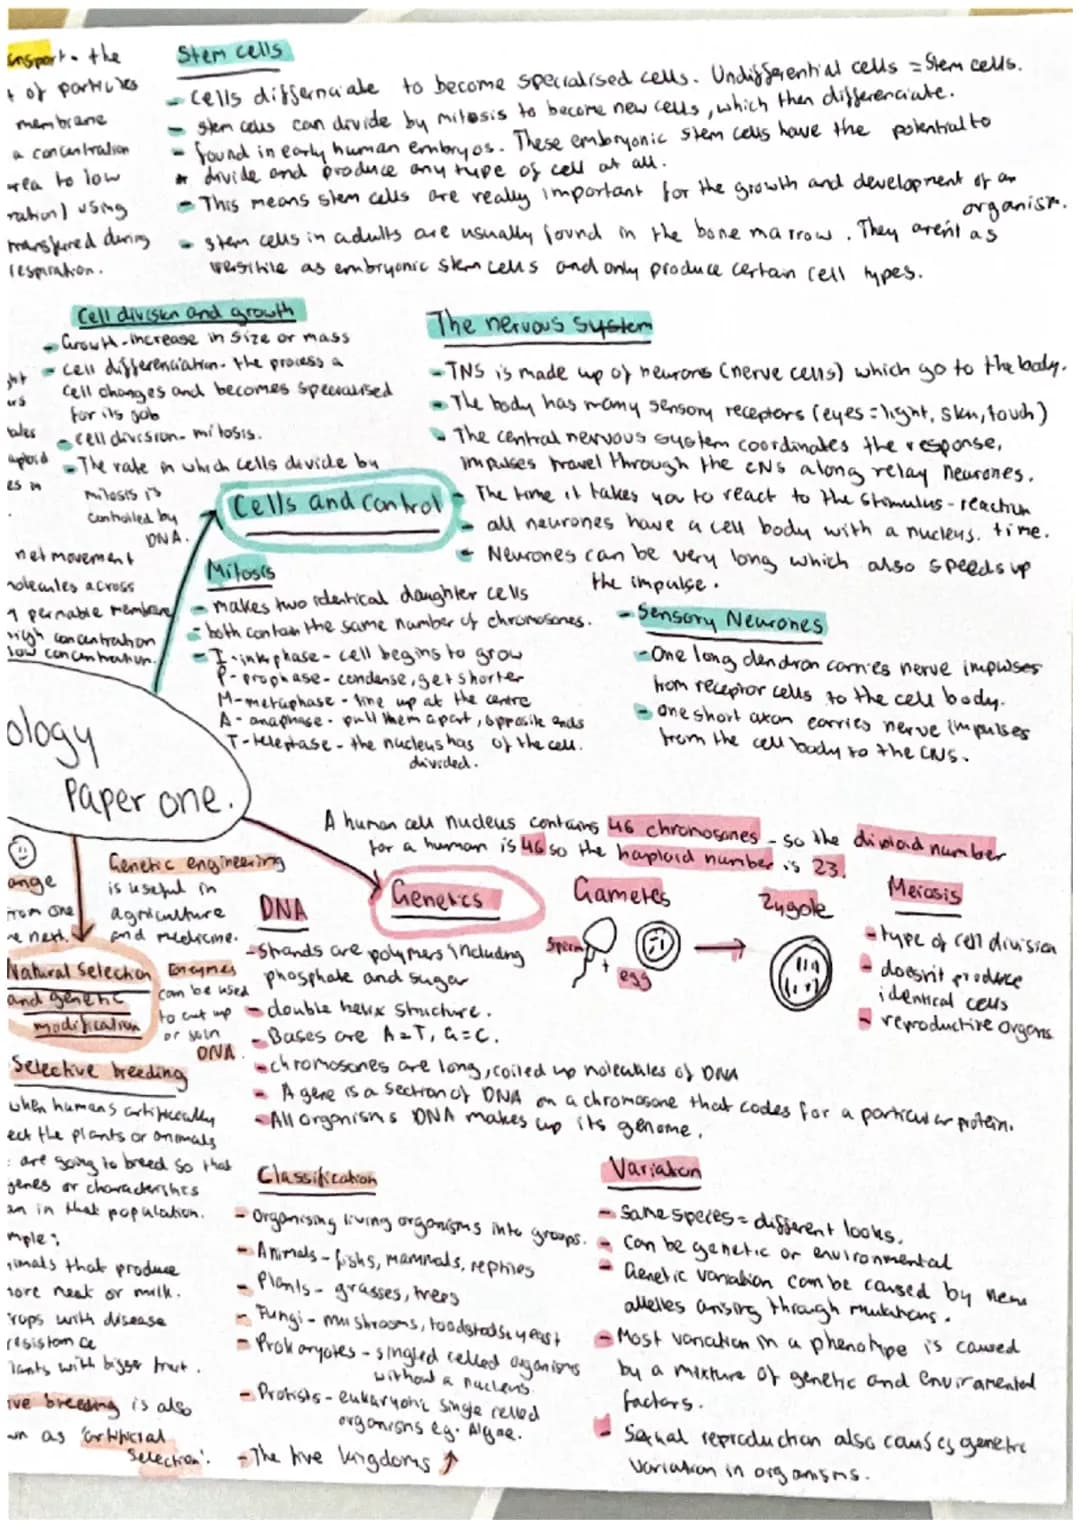 ansport - the
t of particles
membrane
a concentration
area to low
ration) using
transfured during
respiration.
Stem cells
- cells differnciate to become specialised cells. Undifferential cells = Stem cells.
- stem cells can divide by mitosis to become new cells, which then differenciate.
- found in early human embryos. These embryonic stem cells have the potential to
* divide and produce any type of cell at all.
- This means stem cells are really important for the growth and development of an
organism.
- stem cells in adults are usually found in the bone marrow. They aren't as
versitile as embryonic stem cells and only produce certain cell types.
Cell division and growth
- Growth - increase in size or mass
- cell differenciation - the process a
cell changes and becomes specialised
for its job
- cell division - mitosis.
- The rate in which cells divide by
mitosis is
controlled by
DNA.
net movement
molecules across
permable membrane
high concentration
low concentration.
The nervous system
- TNS is made up of neurons (nerve cells) which go to the body.
- The body has many sensory receptors (eyes = light, skin, touch)
- The central nervous system coordinates the response,
impulses travel through the CNS along relay neurones.
- The time it takes you to react to the stimulus - reaction
time.
- all neurones have a cell body with a nucleus.
- Neurones can be very long which also speeds up
the impulse.
Cells and Control
Mitosis
- makes two identical daughter cells
- both contain the same number of chromosones.
- I - interphase - cell begins to grow
P - prophase - condense, get shorter
M - metaphase - line up at the centre
A - anaphase - pull them apart, opposite ends
of the cell.
T - telephase - the nucleus has
divided.
- Sensory Neurones
- One long dendron carries nerve impulses
from receptor cells to the cell body.
- one short axon carries nerve impulses
from the cell body to the CNS.
ology
Paper one.
A human cell nucleus contains 46 chromosones - so the diploid number
for a human is 46 so the haploid number is 23.
Genetics
Gametes
Sperm
+
egg
Zygote
Meiosis
- type of cell division
- doesn't produce
identical cells
- reproductive organs
Genetic engineering
is useful in
agriculture
and medicine.
Enzymes
can be used
to cut up
or join
DNA.
ange
from one
next.
Natural Selection
and genetic
modification
DNA
- Strands are polymers including
phosphate and sugar
- double helix structure.
- Bases are A=T, G=C.
- chromosones are long, coiled up molecules of DNA
- A gene is a section of DNA on a chromosone that codes for a particular protein.
- All organisms DNA makes up its genome.
Selective breeding
when humans artificially
ect the plants or animals
are going to breed so that
genes or characteristics
an in that population.
mple:
nimals that produce
more meat or milk.
rops with disease
resistance
lants with bigger fruit.
ive breeding is also
wn as 'artificial
Selection'.
Classification
- Organising living organisms into groups.
- Animals - fishs, mammals, reptiles
- Plants - grasses, trees
- Fungi - mushrooms, toadstools, yeast
- Prokaryotes - singled celled organisms
without a nucleus.
- Protists - eukaryotic single celled
organisms eg. Algae.
- The five kingdoms ↑
Variation
- Same species = different looks.
- Can be genetic or environmental
- Genetic variation can be caused by new
alleles arising through mutations.
- Most variation in a phenotype is caused
by a mixture of genetic and enviramental
factors.
- Sexual reproduction also causes genetic
variation in organisms.